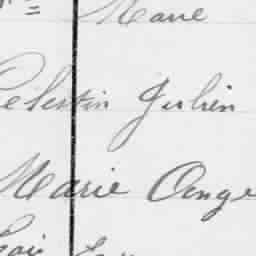 Marie
Celestin Julien
Marie Ange